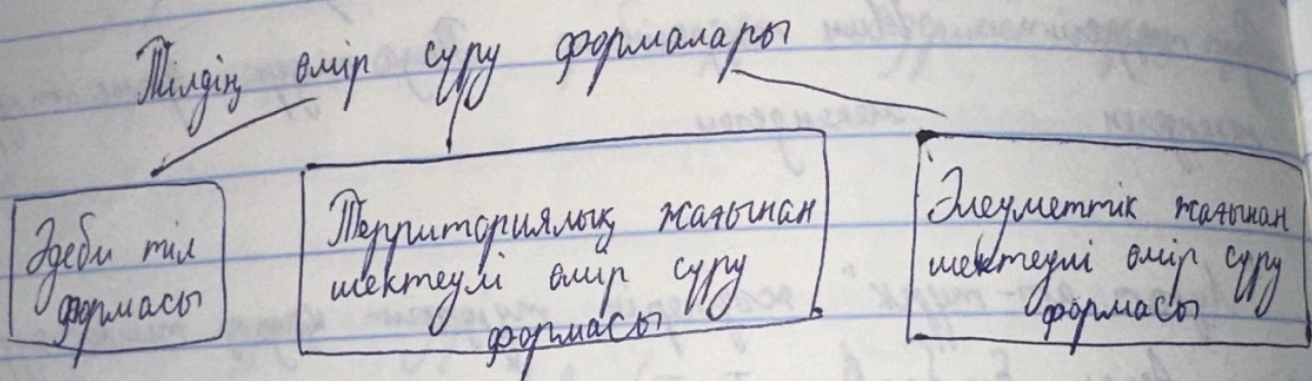 Тілдің өмір сүру формалары
Әдеби тіл
формасы
Территориялық жағынан
шектеулі өмір сүру
формасы
Әлеуметтік жағынан
шектеулі өмір сүру
формасы